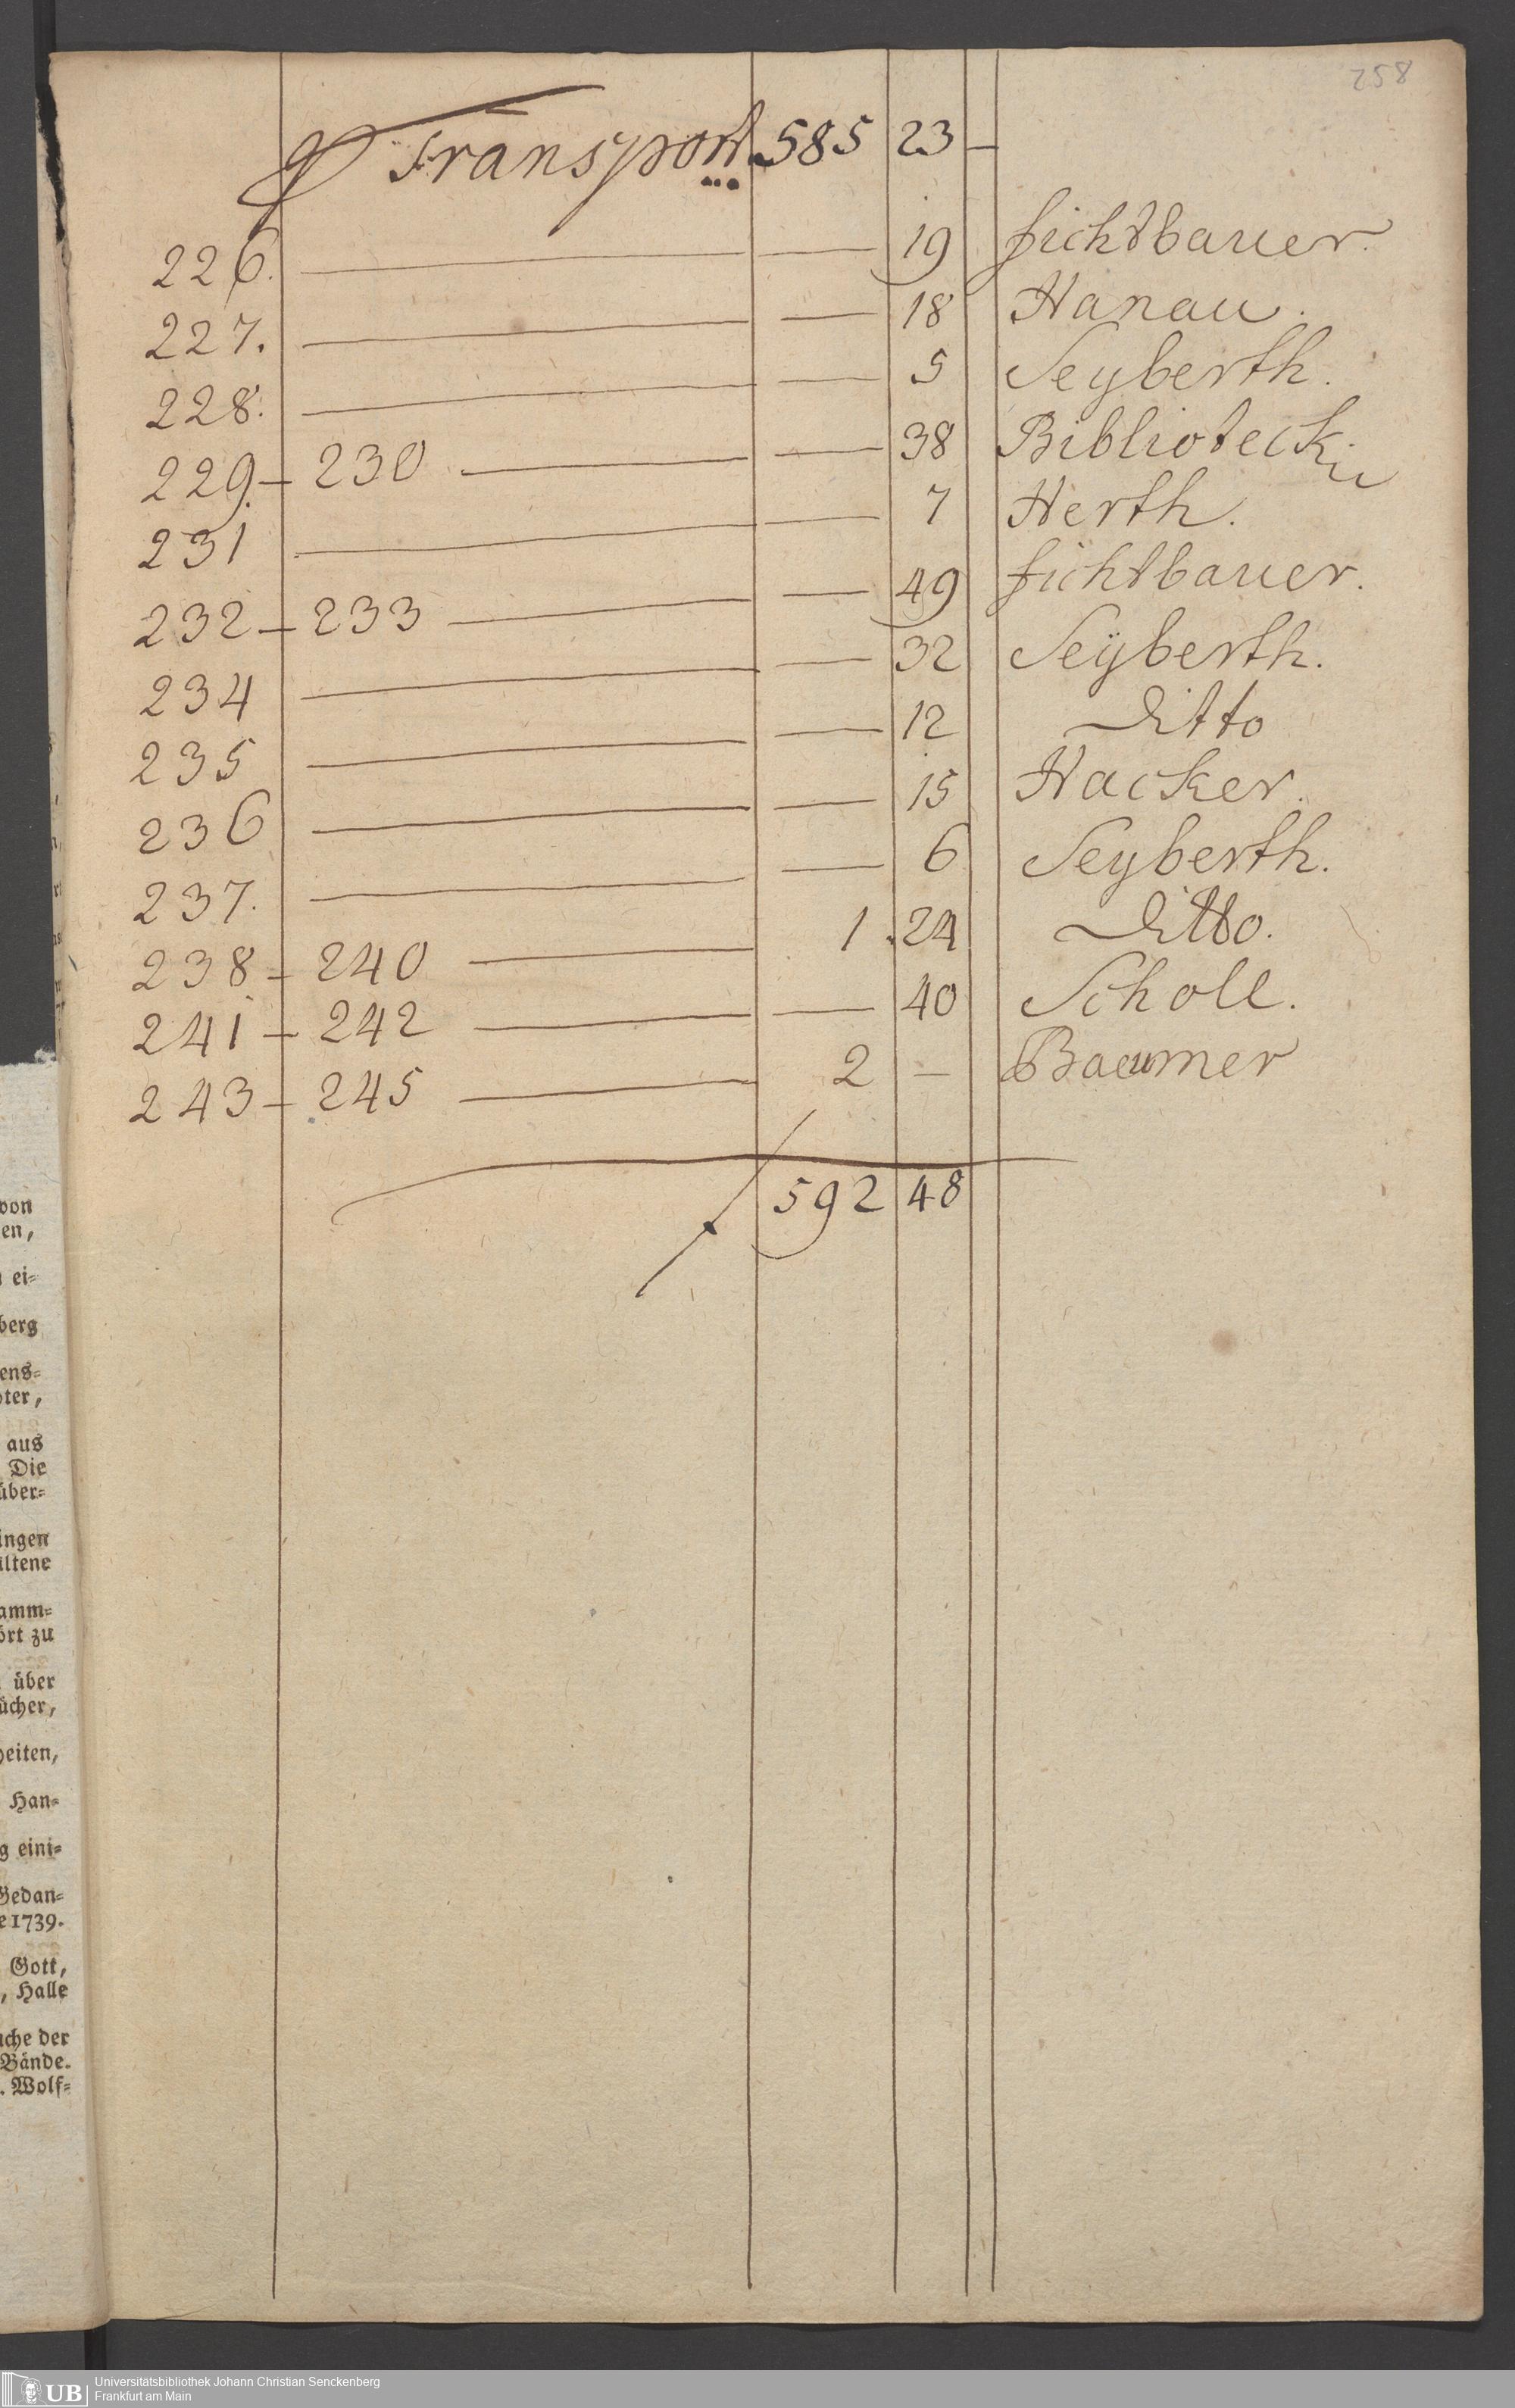 258
Transport 585 23 —
226. — — 19 fichtbauer.
227. — — 18 Hanau.
228. — — 5 Seyberth.
229 — 230 — — 38 Biblioteck
231 — — 7 Herth.
232 — 233 — — 49 fichtbauer.
234 — — 32 Seÿberth.
235 — — 12 Ditto
236 — — 15 Hacker.
237. — — 6 Seyberth.
238 — 240 — 1. 24 Ditto.
241 — 242 — — 40 Scholl.
243 — 245 — 2 — Baeumer
592 48
von
en,
ei=
berg
ens=
ter,
aus
Die
über=
ingen
ltene
amm=
ört zu
über
ücher,
heiten,
Han=
g eini=
Gedan=
e 1739.
Gott,
, Halle
che der
Bände.
. Wolf=
UB Universitätsbibliothek Johann Christian Senckenberg
Frankfurt am Main